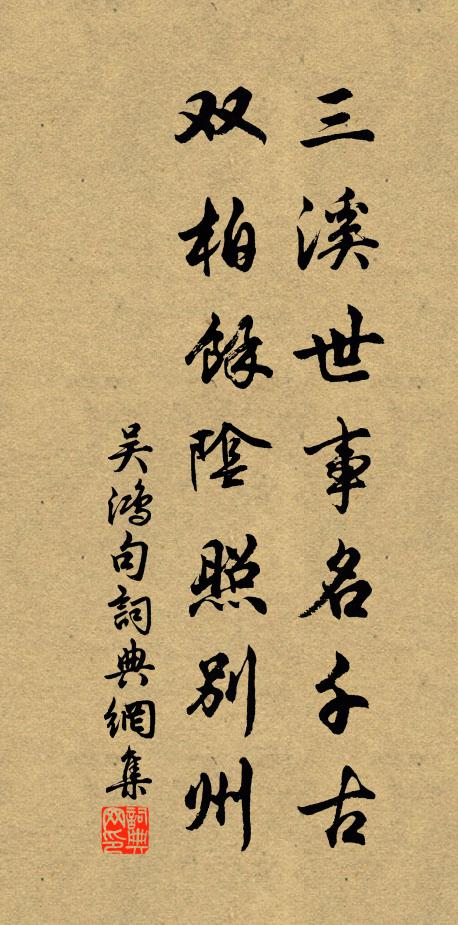 三溪世事名千古
双柏餘陰照别州
吴鴻句詞典網集
詞典網印